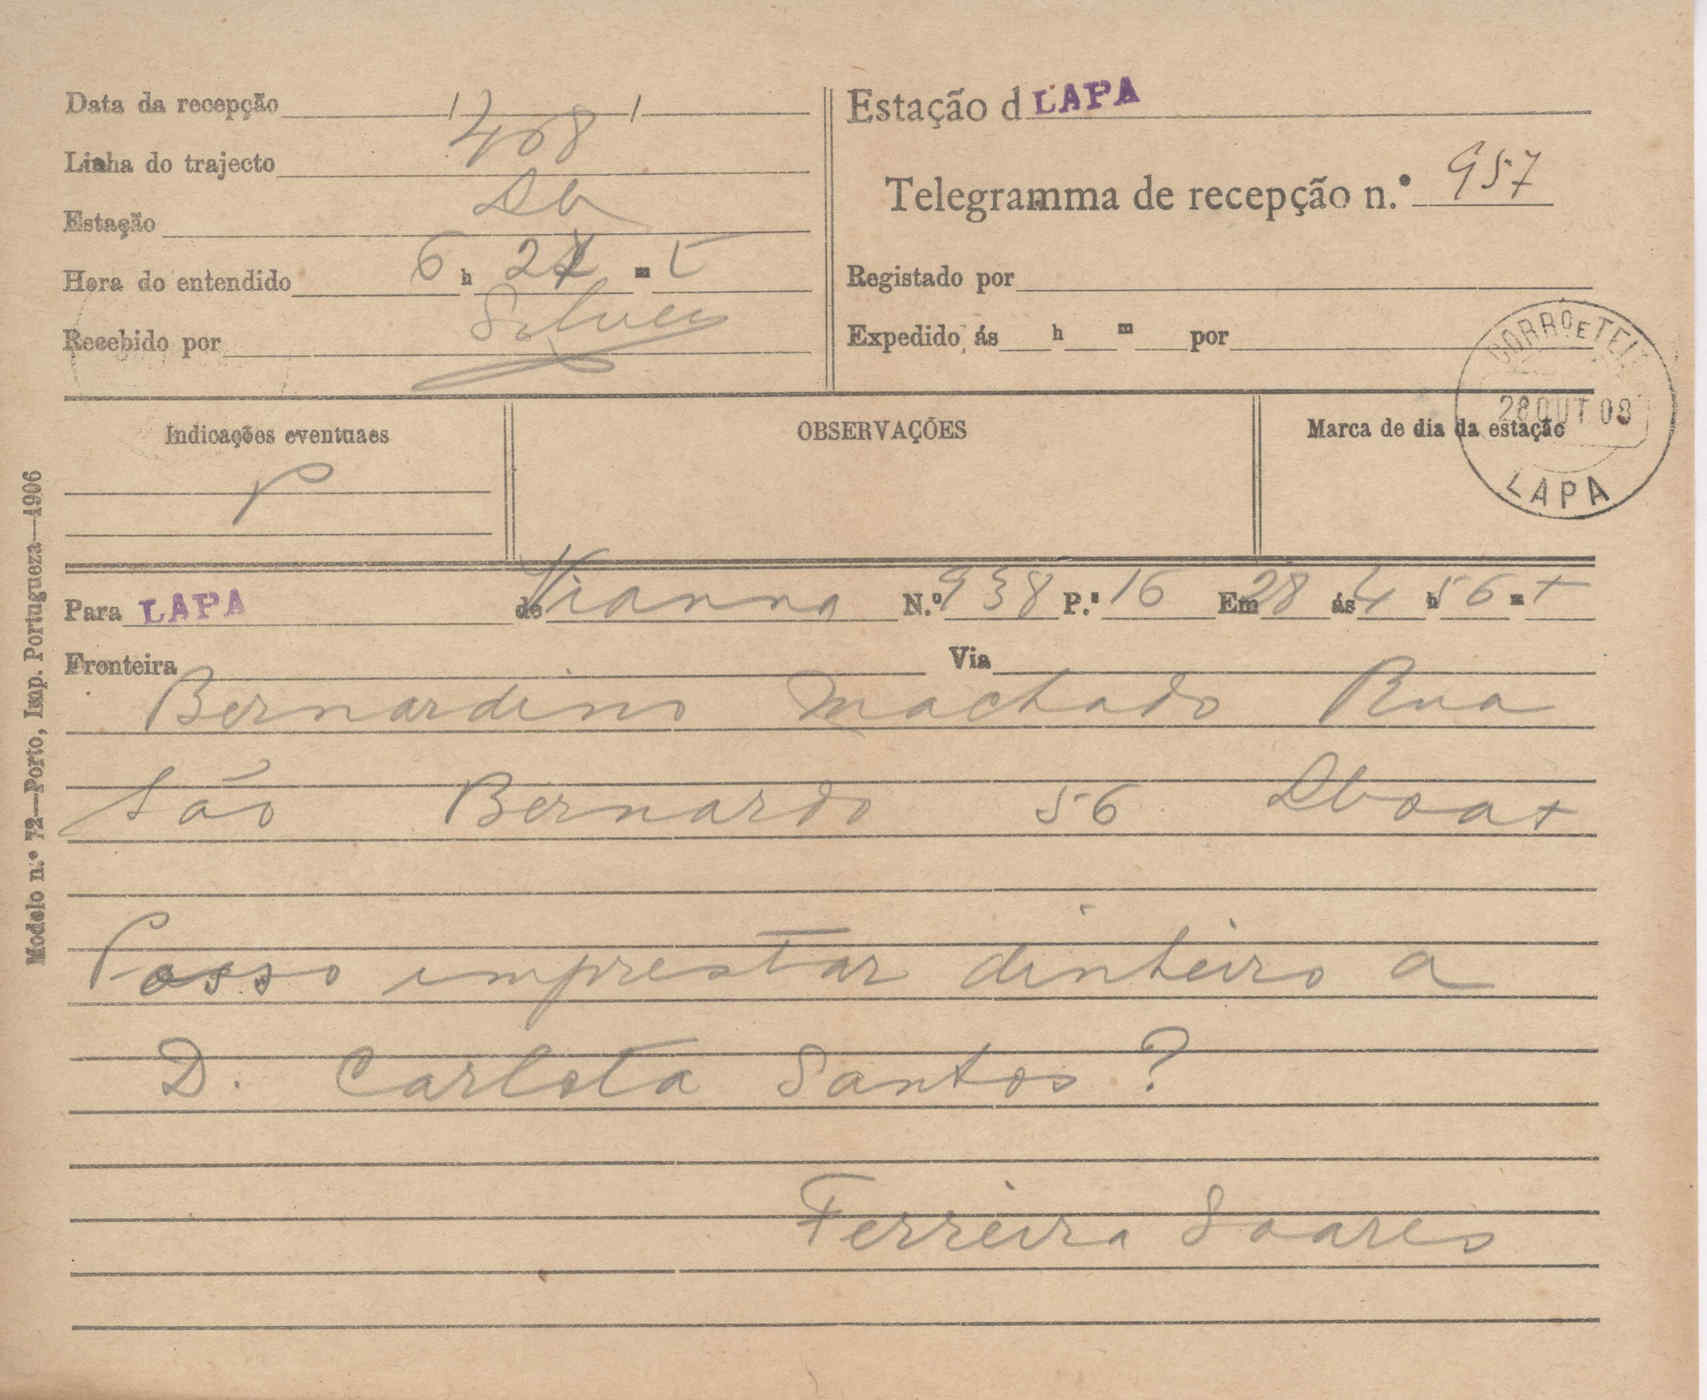 Data da recepção / /
Linha do trajecto 408
Estação
Hora do entendido 6 h 2 m t
Recebido por
Estação d LAPA
Telegramma de recepção n.º 957
Registado por
Expedido ás h m por
CORRO E TEL
28 OUT 08
LAPA
Indicações eventuaes
P
OBSERVAÇÕES
Marca de dia da estação
Para LAPA de Vianna N.º 938 P.s 16 Em 28 ás 4 h 56 m t
Fronteira Via
Bernardino Machado Rua
São Bernardo 56
Posso imprestar dinheiro a
D. Carlota Santos?
Ferreira Soares
Modelo n.º 72—Porto, Imp. Portugueza—1906